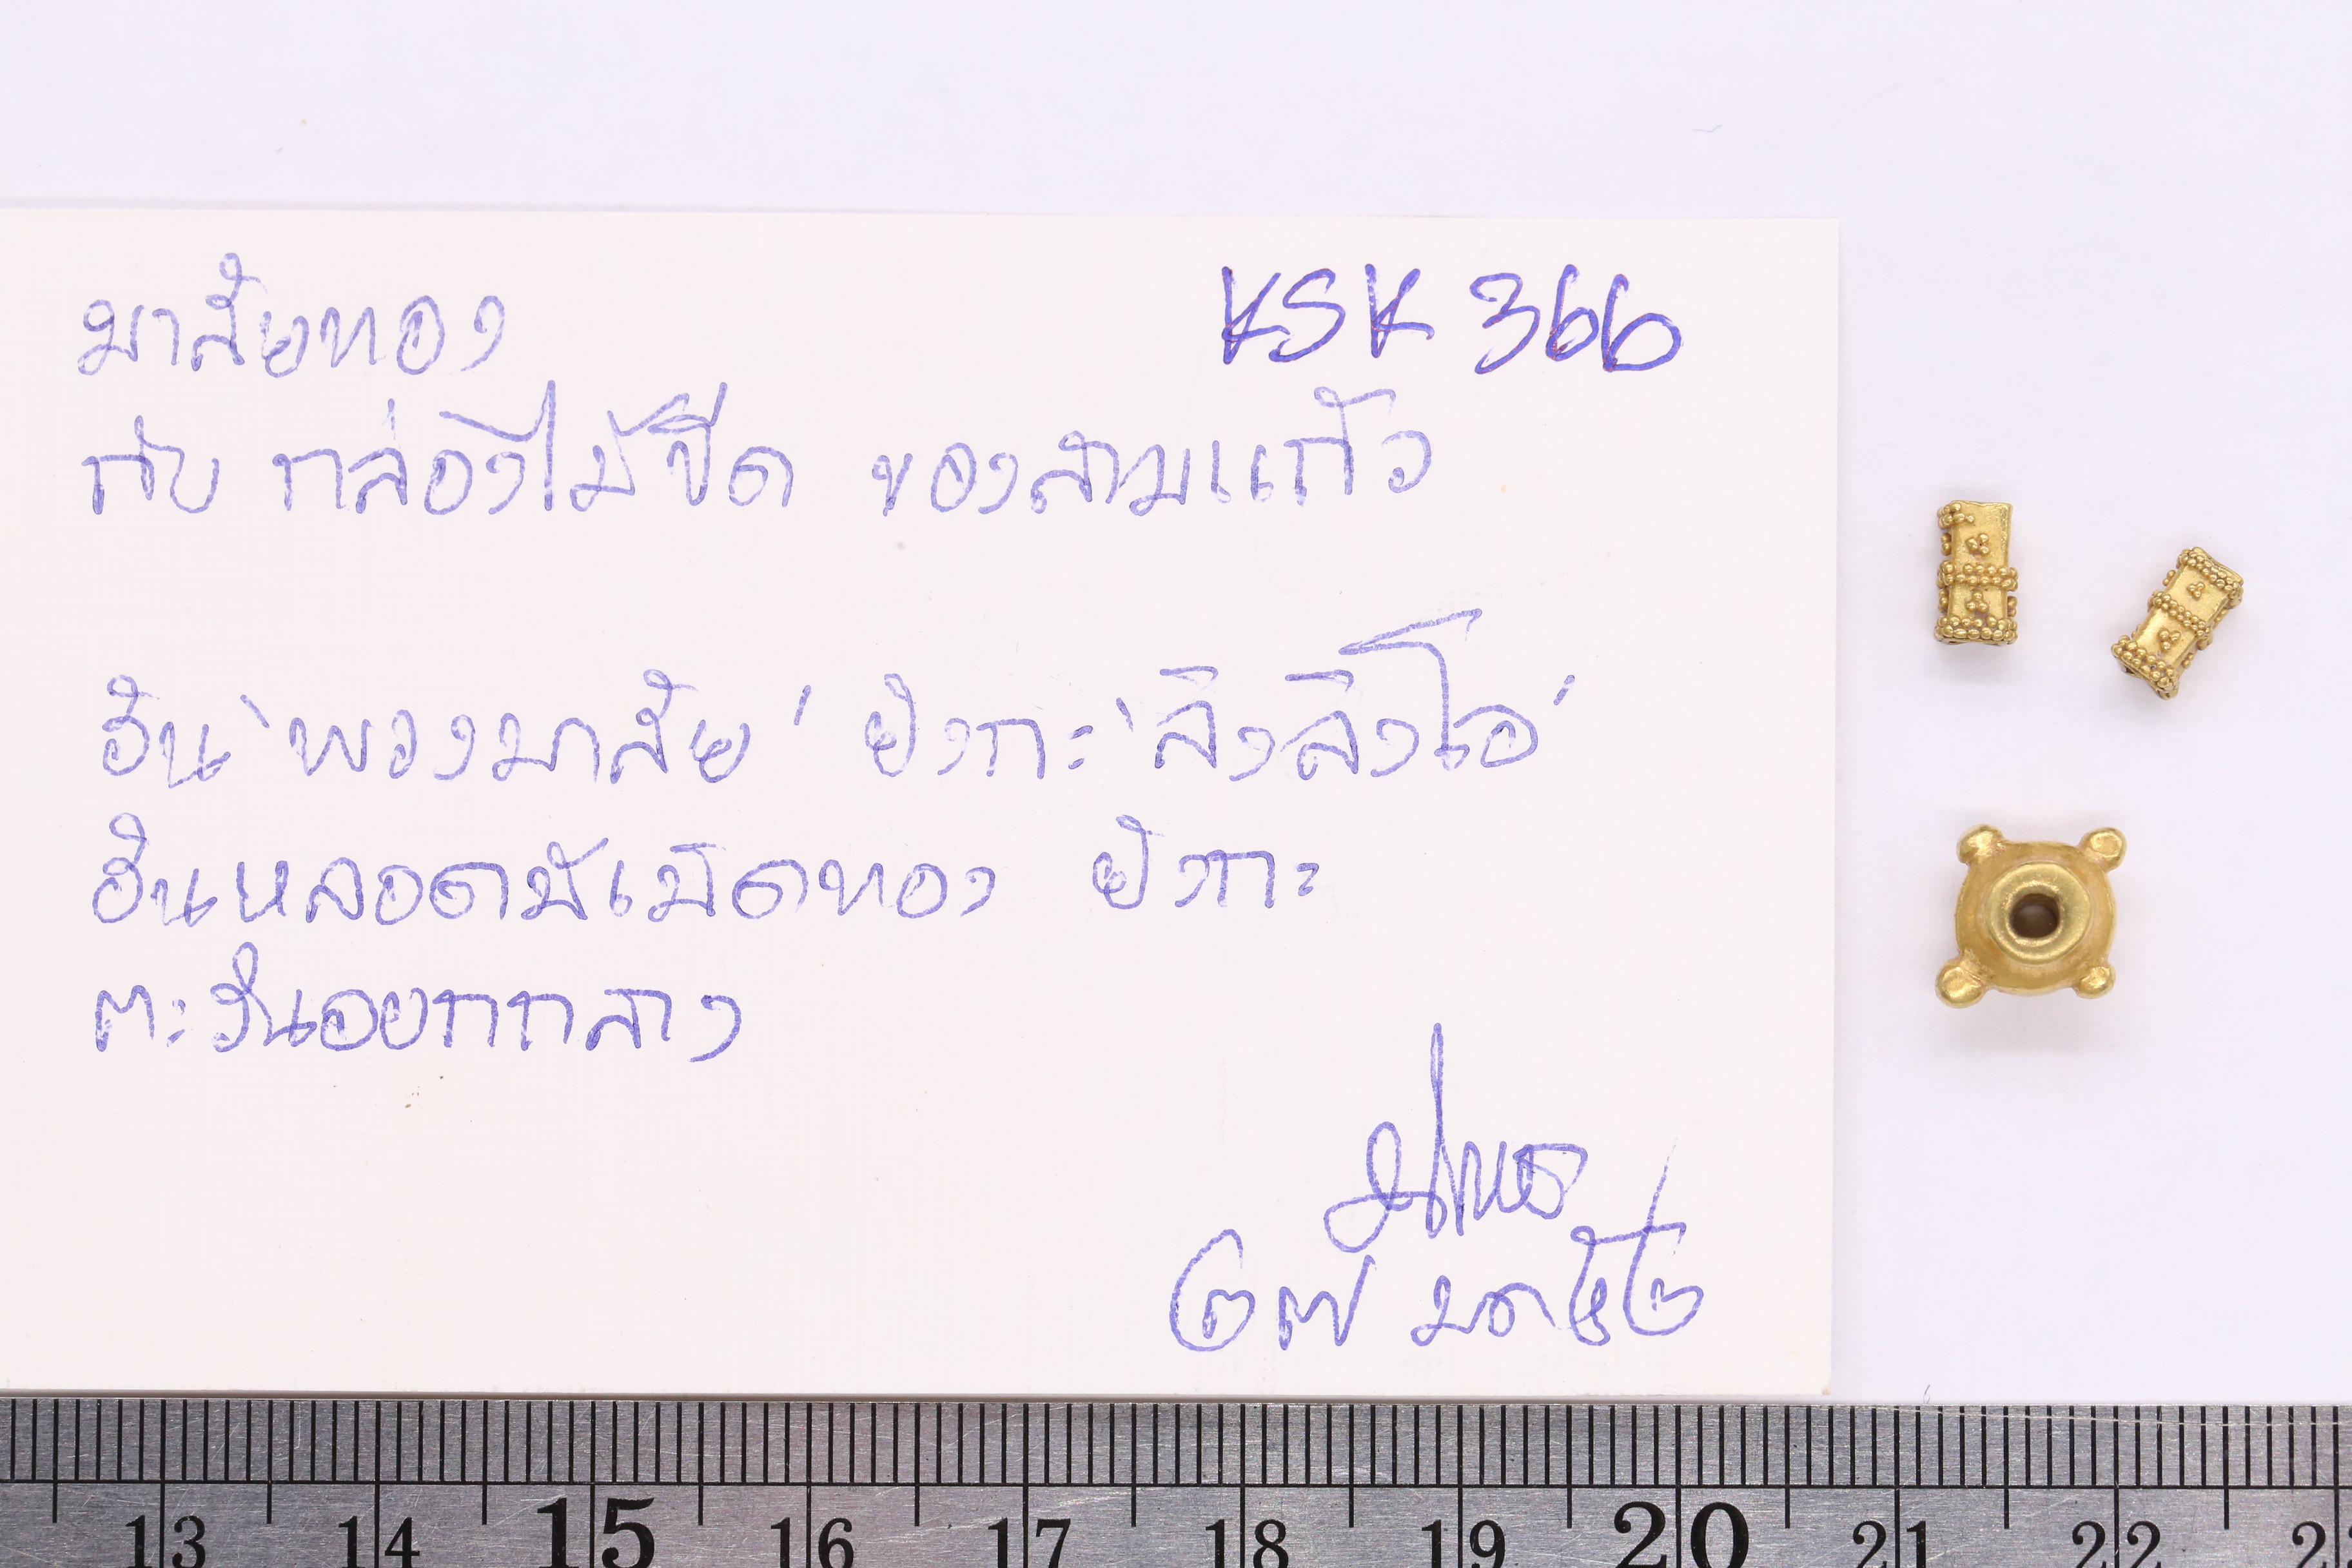 มาลัยทอง KSK 366
กับ กล่องไม้ขีด ของสามแก้ว
อัน 'พวงมาลัย' ยังกะ 'ลิงลิงโอ'
อันหลอดมีเม็ดทอง ยังกะ
ตะวันออกกลาง
๒๗ มค ๕๒
13 14 15 16 17 18 19 20 21 22 2